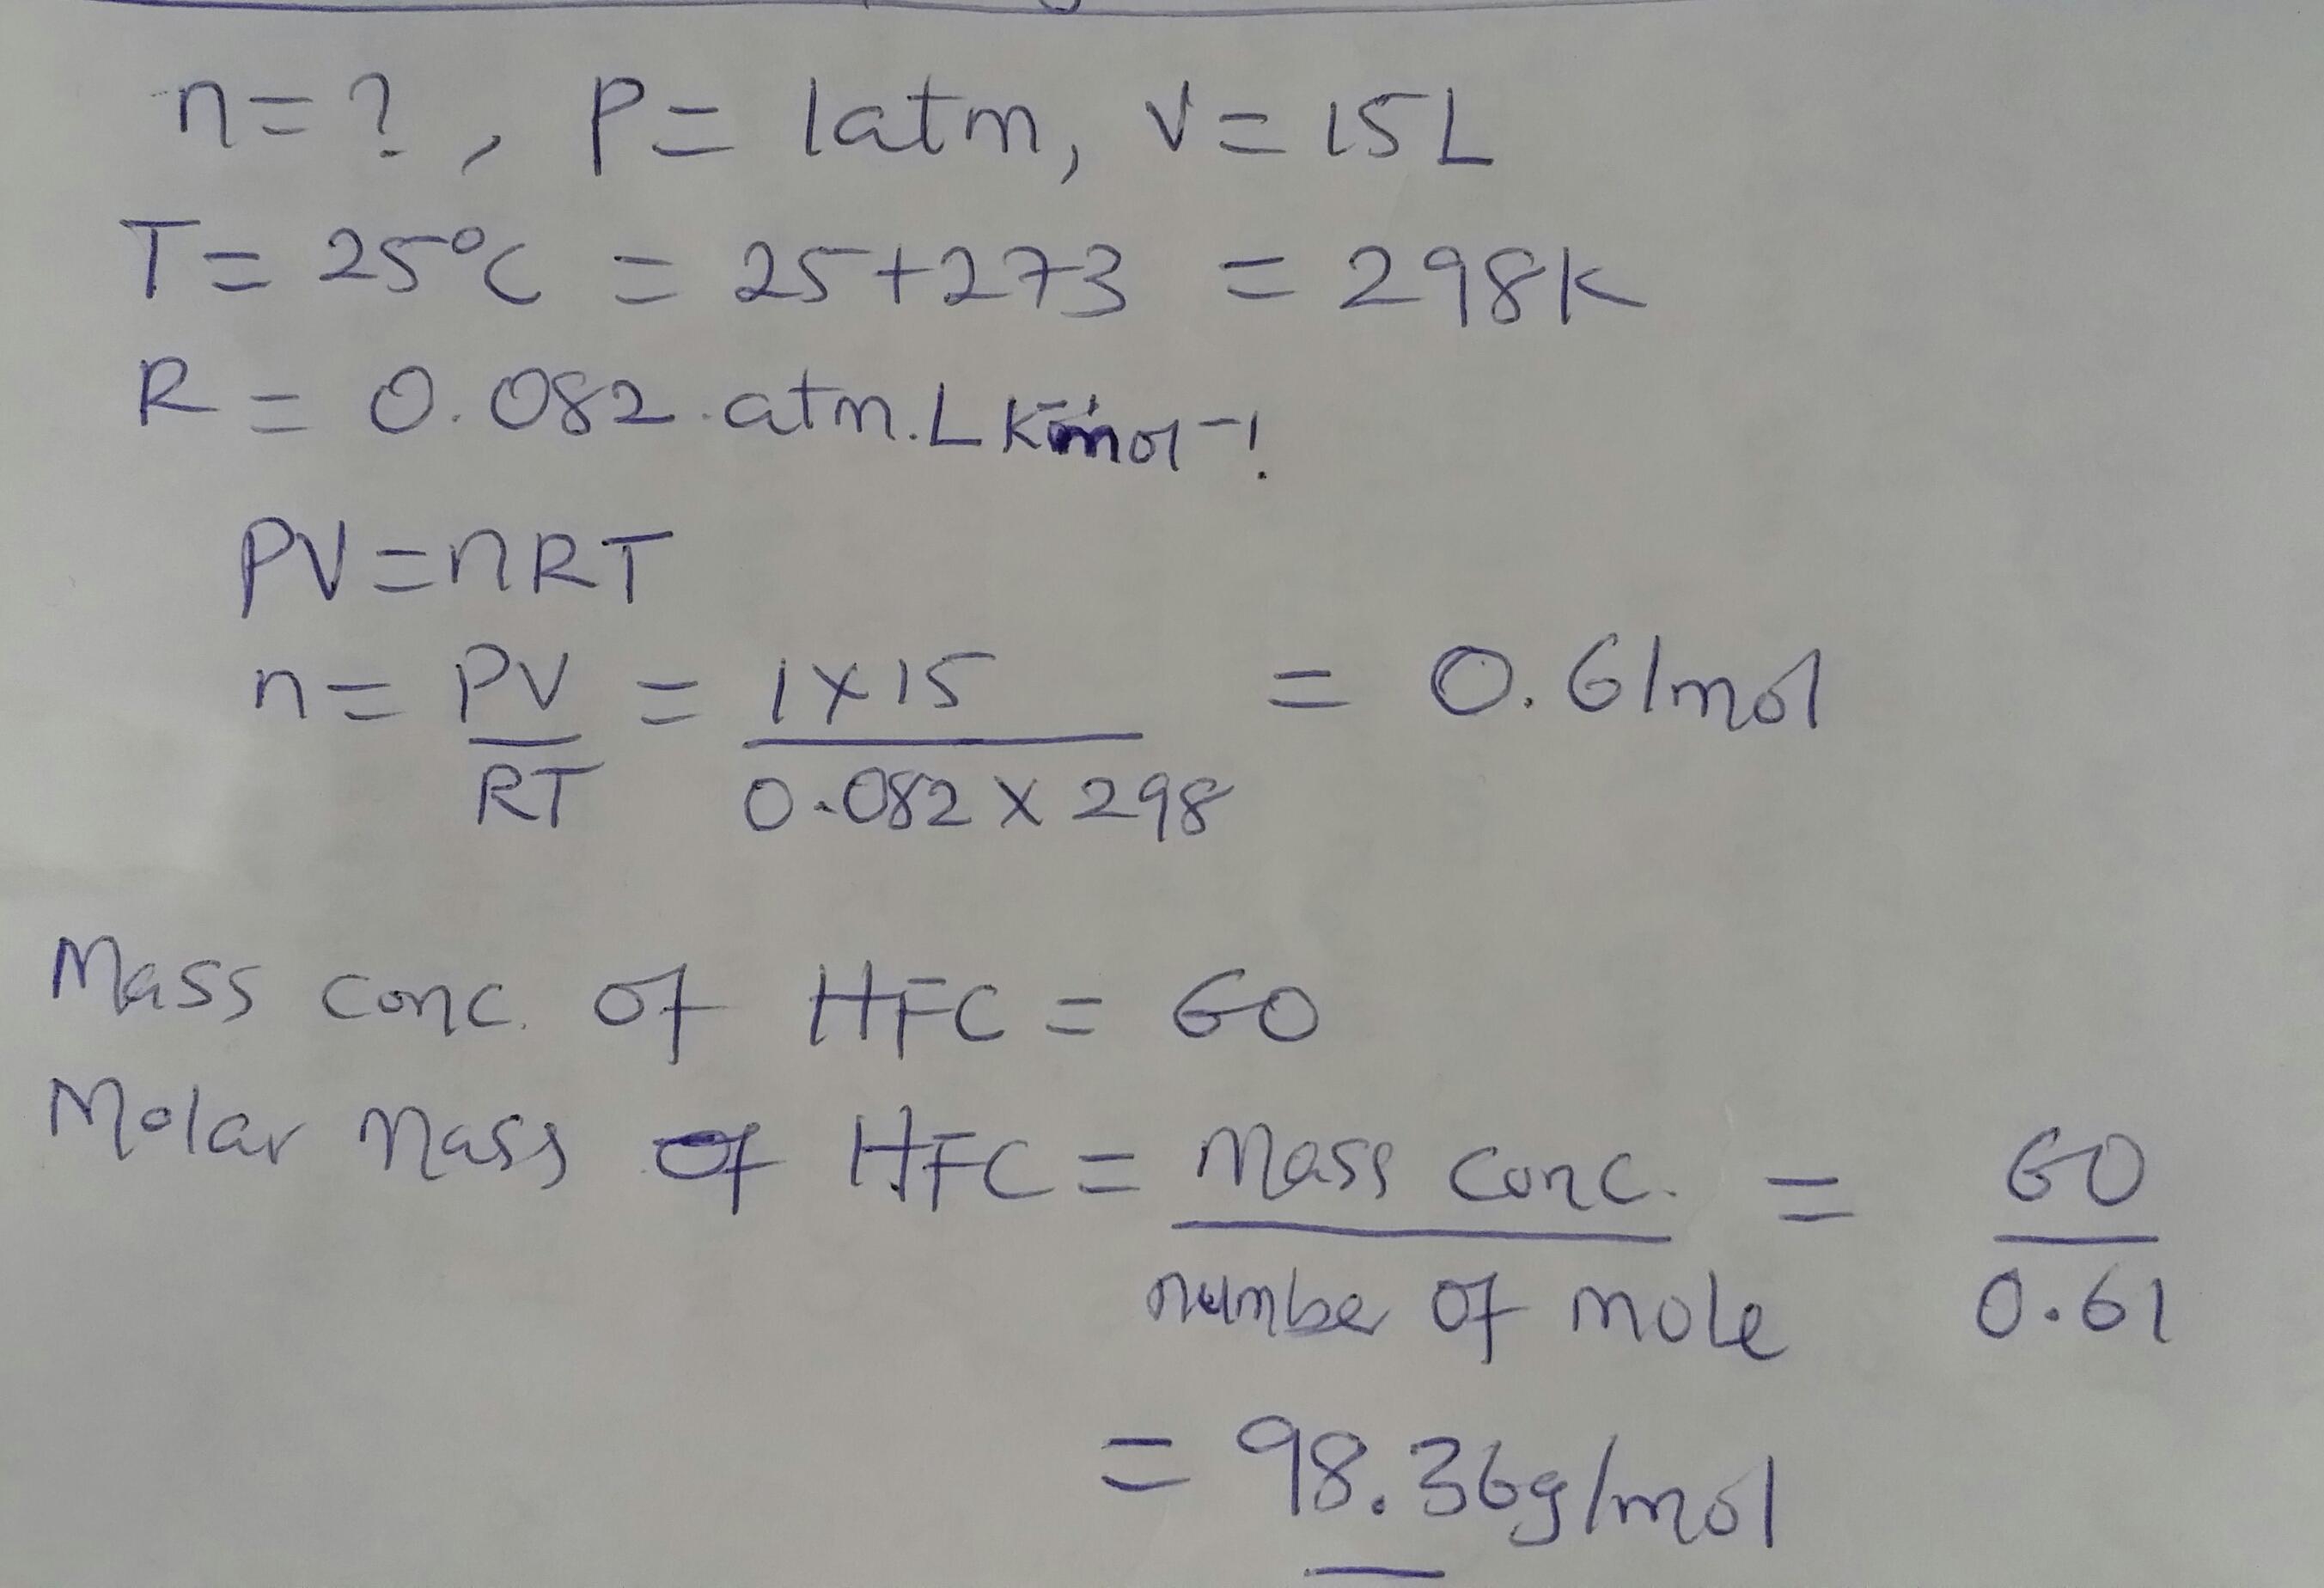 n = ? , P = 1atm, V = 15L
T = 25°C = 25+273 = 298K
R = 0.082 atm.L K⁻¹mol⁻¹.
PV = nRT
n = PV/RT = 1×15/0.082 × 298 = 0.61mol
Mass conc. of HFC = 60
Molar Mass of HFC = Mass conc./number of mole = 60/0.61
= 98.36g/mol